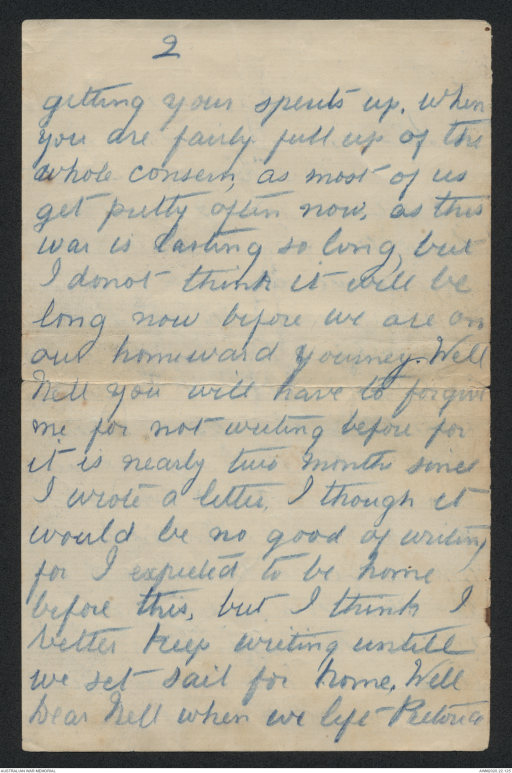 2
getting your spirits up, when
you are fairly full up of the
whole consern, as most of us
get pretty often now, as this
war is lasting so long, but
I donot think it will be
long now before we are on
our homeward yourney. Well
Nell you will have to forgive
me for not writing before for
it is nearly two months since
I wrote a letter, I though it
would be no good of writing
for I expected to be home
before this, but I think I
better keep writing untill
we set sail for home. Well
Dear Nell when we left Pretoria
AUSTRALIAN WAR MEMORIAL